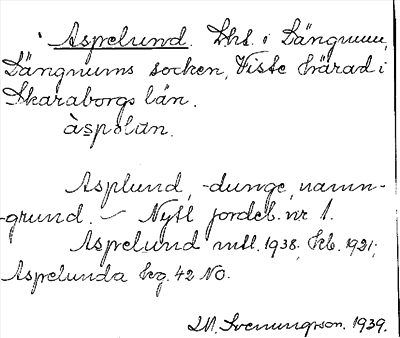 Aspelund. Lht. i Längnum,
Längnums socken, Viste härad i
Skaraborgs län.
àspəlùn.
Asplund, -dunge, namn-
-grund. — Nytt jordeb. nr 1.
Aspelund mtl. 1938, Kb. 1921;
Aspelunda hg. 42 NO.
M. Svenungson. 1939.